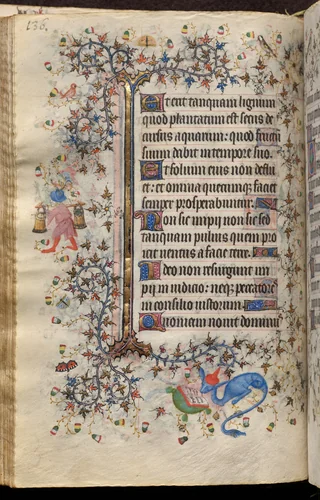 136.
Et erit tanquam lignum
quod plantatum est secus de
cursus aquarum: quod fructū
suum dabit in tempore suo.
Et folium eius non deflu
et: et omnia quecumqȝ faciet
semper prosperabuntur.
Non sic impii non sic sed
tanquam puluis quem pro
icit uentus a facie terre.
Ideo non resurgunt im
pii in iudicio: neqȝ peccatores
in consilio iustorum.
Quoniam nouit dominus